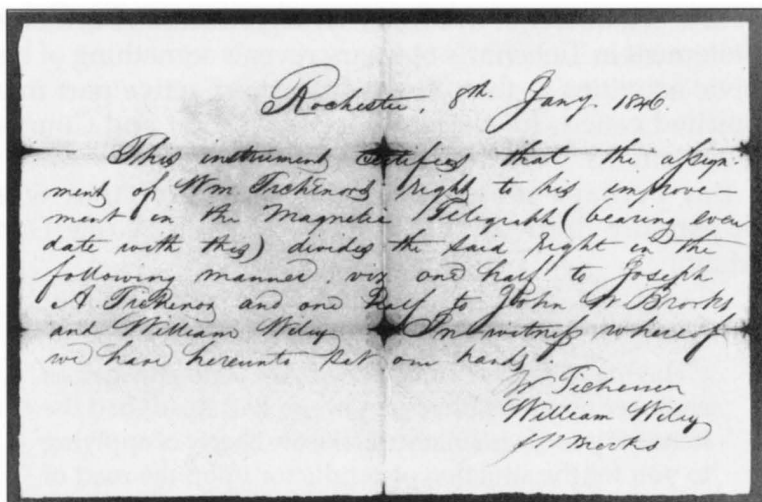 Rochester, 8th. Jany. 1846.
This instrument certifies that the assign-
ment of Wm. Tickenors right to his improve-
ment in the Magnetic Telegraph (bearing even
date with this) divides the said right in the
following manner. viz one half to Joseph
A Tickenor and one half to John W Brooks
and William Wiley In witness whereof
we have hereunto set our hands.
W Tichenor
William Wiley
J W Brooks